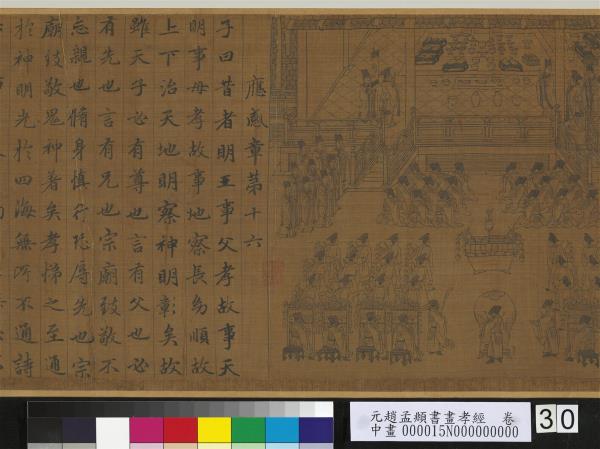 應感章第十六
子曰昔者明王事父孝故事天
明事母孝故事地察長幼順故
上下治天地明察神明彰矣故
雖天子必有尊也言有父也必
有先也言有兄也宗廟致敬不
忘親也脩身慎行恐辱先也宗
廟致敬鬼神著矣孝悌之至通
於神明光於四海無所不通詩
元趙孟頫書畫孝經 卷
中畫 000015N000000000
30